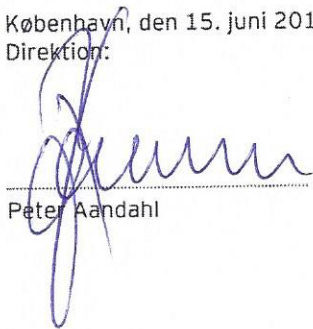 København, den 15. juni 201
Direktion:
Peter Aandahl